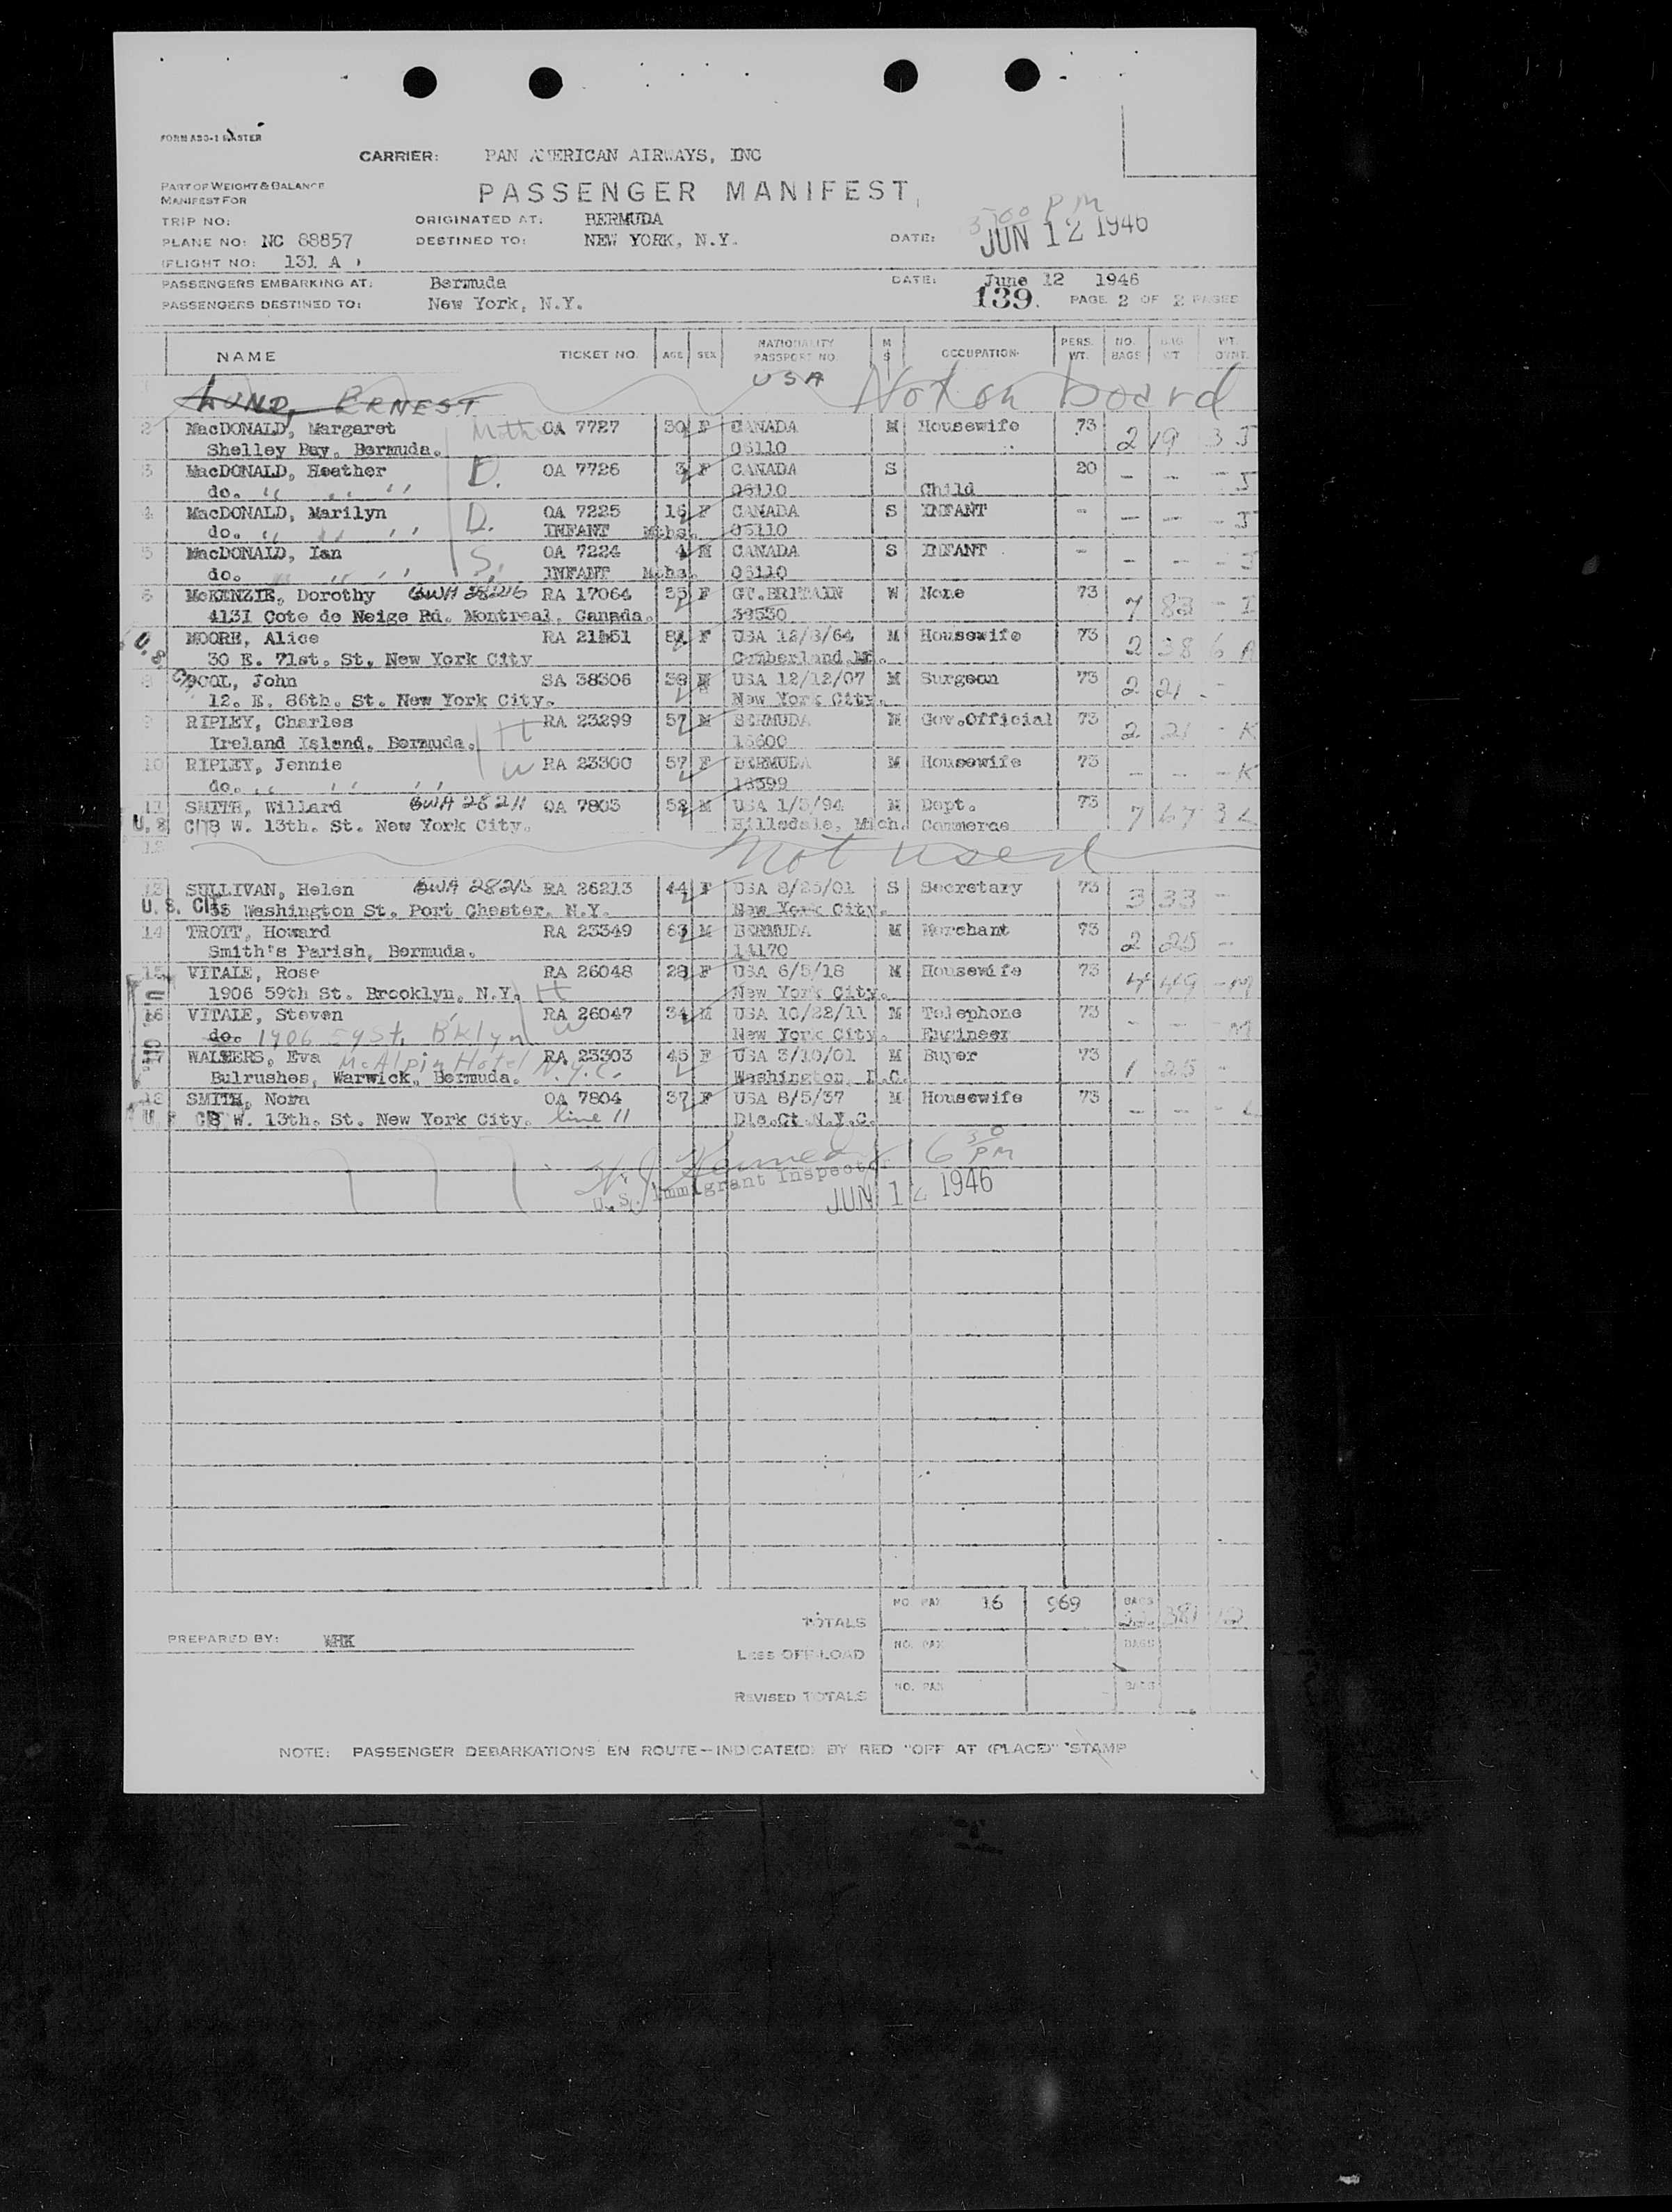 FORM ASG-1 MASTER
CARRIER: PAN AMERICAN AIRWAYS, INC
PART OF WEIGHT & BALANCE
MANIFEST FOR
PASSENGER MANIFEST
5:00 PM
TRIP NO: ORIGINATED AT: BERMUDA
PLANE NO: NC 88857 DESTINED TO: NEW YORK, N.Y. DATE: JUN 12 1946
FLIGHT NO: 131 A
PASSENGERS EMBARKING AT: Bermuda DATE: June 12 1946
PASSENGERS DESTINED TO: New York, N.Y. 139. PAGE 2 OF 2 PAGES
NAME TICKET NO. AGE SEX NATIONALITY PASSPORT NO. M S OCCUPATION PERS. WT. NO. BAGS BAG WT WT. OVWT.
LUND, ERNEST USA Not on board
2 MacDONALD, Margaret Moth OA 7727 30 F CANADA M Housewife 73 2 19 3 J
Shelley Bay, Bermuda. 06110
3 MacDONALD, Heather D. OA 7726 3 F CANADA S 20 - - - J
do. " " " 06110 Child
4 MacDONALD, Marilyn D. OA 7225 16 F CANADA S INFANT - - - - J
do. " " " INFANT Mths. 06110
5 MacDONALD, Ian S. OA 7224 4 M CANADA S INFANT - - - - J
do. " " " INFANT Mths. 06110
6 McKENZIE, Dorothy GWA 28216 RA 17064 55 F GT.BRITAIN W None 73 7 83 - I
4131 Cote de Neige Rd. Montreal, Canada. 39530
MOORE, Alice RA 21451 81 F USA 12/8/64 M Housewife 73 2 38 6 A
U.S. CIT.
30 E. 71st. St, New York City Cumberland Md.
8 POOL, John SA 38306 38 M USA 12/12/07 M Surgeon 73 2 21 - -
12. E. 86th. St. New York City. New York City.
9 RIPLEY, Charles H RA 23299 57 M BERMUDA M Gov.Official 73 2 21 - K
Ireland Island, Bermuda. 13600
10 RIPLEY, Jennie W RA 23300 57 F BERMUDA M Housewife 73 - - - K
do. " " " 13599
11 SMITH, Willard GWA 28211 OA 7803 52 M USA 1/5/94 M Dept. 73 7 67 3 L
U.S. CIT 8 W. 13th. St. New York City. Hillsdale, Mich. Commerce
12 not used
13 SULLIVAN, Helen GWA 28215 RA 26213 44 F USA 8/25/01 S Secretary 73 3 33 -
U. S. CIT. 35 Washington St. Port Chester, N.Y. New York City.
14 TROTT, Howard RA 23349 63 M BERMUDA M Merchant 73 2 25 -
Smith's Parish, Bermuda. 14170
15 VITALE, Rose RA 26048 28 F USA 6/5/18 M Housewife 73 4 49 - M
1906 59th St. Brooklyn, N.Y. H New York City.
16 VITALE, Steven RA 26047 34 M USA 10/22/11 M Telephone 73 - - - M
do. 1906 59 St. Bklyn W New York City. Engineer
WALTERS, Eva McAlpin Hotel N.Y.C. RA 23303 45 F USA 3/10/01 M Buyer 73 1 25 -
Bulrushes, Warwick, Bermuda. Washington, D.C.
18 SMITH, Nora OA 7804 37 F USA 8/5/37 M Housewife 73 - - - L
8 W. 13th. St. New York City. line 11 Dis.Ct N.Y.C.
6 30 PM
U.S. Immigrant Inspector
JUN 12 1946
TOTALS NO PAX 16 969 BAGS 381
PREPARED BY: WHK
LESS OFF-LOAD NO. PAX BAGS
REVISED TOTALS NO. PAX BAGS
NOTE: PASSENGER DEBARKATIONS EN ROUTE—INDICATE(D) BY RED "OFF AT (PLACE)" STAMP